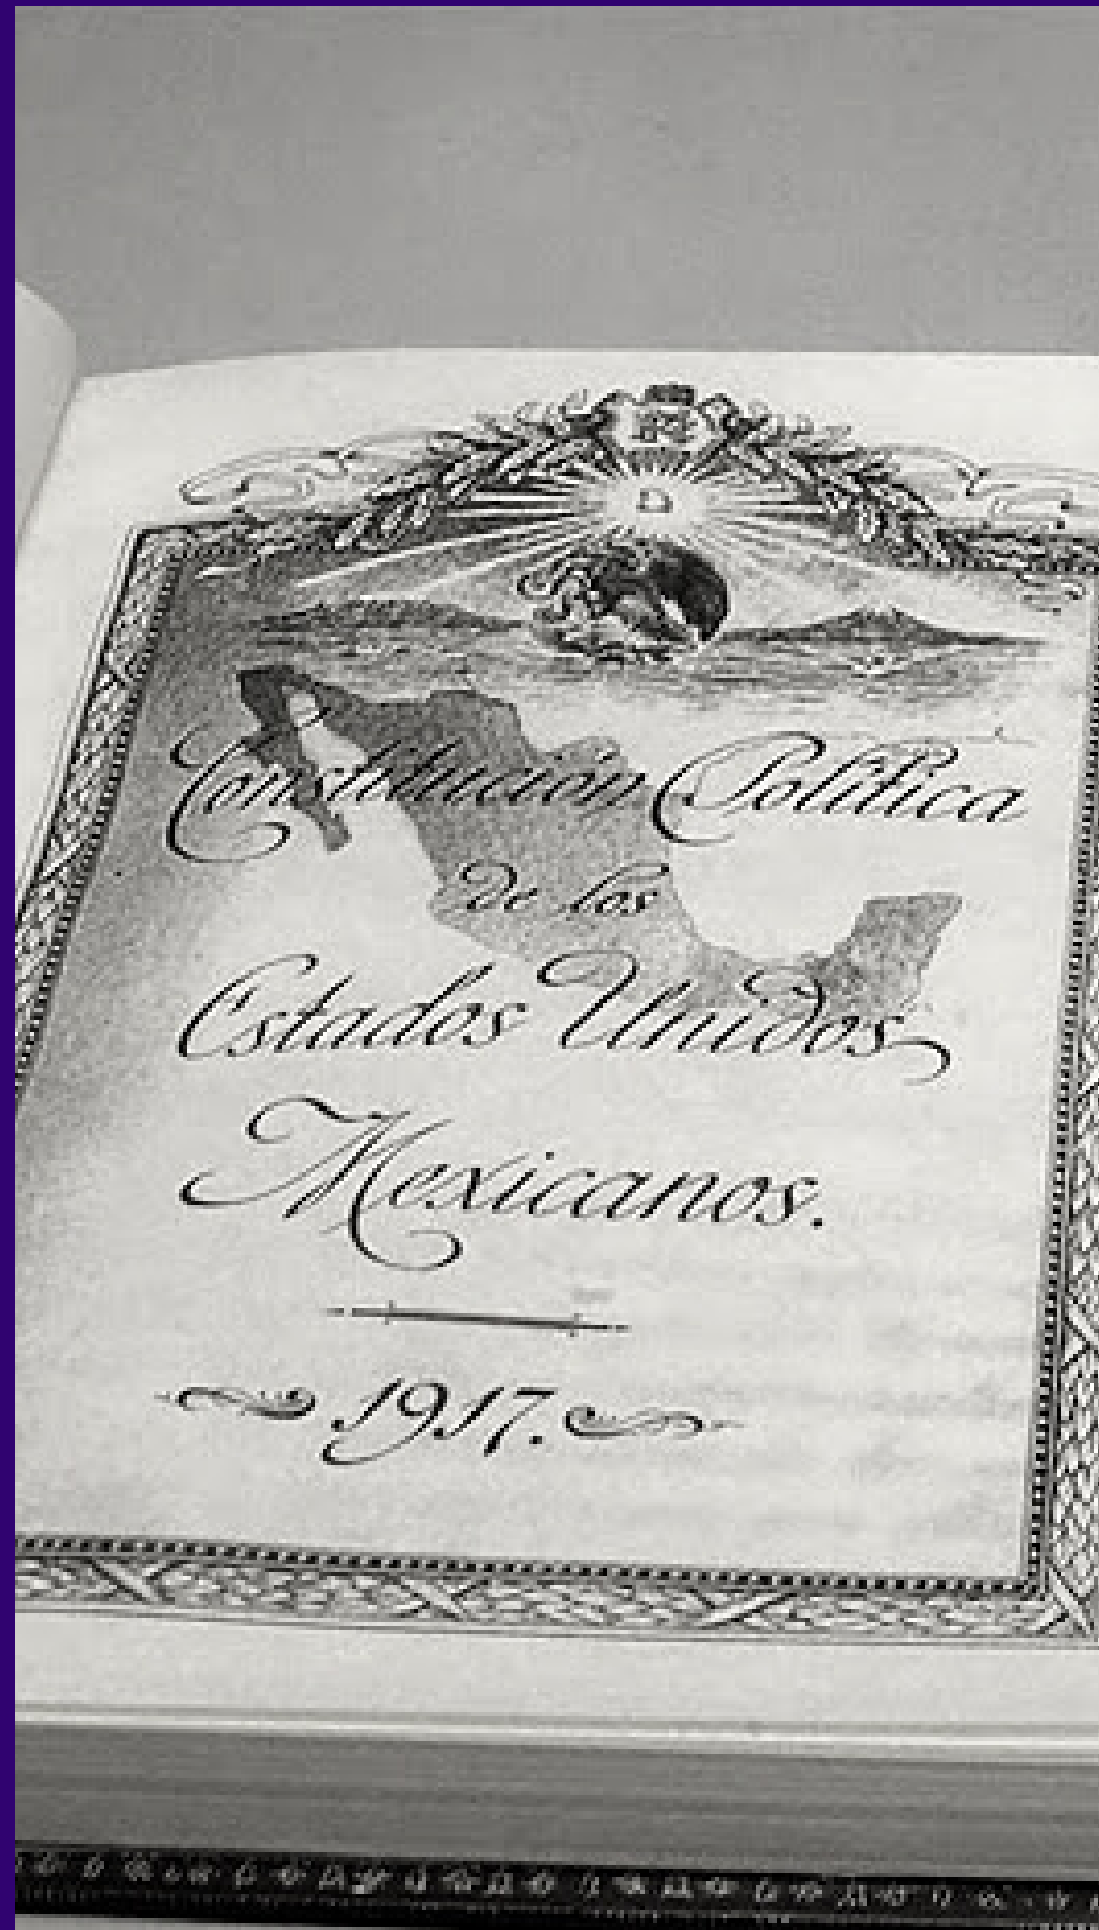 Constitución Política
De los
Estados Unidos
Mexicanos.
1917.